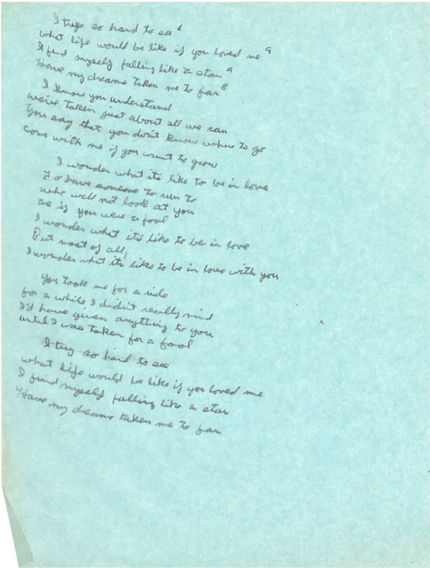 I trys so hard to see 6
what life would be like if you loved me 9
I find myself falling like a star 9
Have my dreams taken me to far 8
I know you understand
we've taken just about all we can
You say that you don't know where to go
come with me if you want to grow
I wonder what it's like to be in love
To have someone to run to
who will not look at you
as if you were a fool
I wonder what it's like to be in love
But most of all,
I wonder what it's like to be in love with you
You took me for a ride
for a while I didn't really mind
I'd have given anything to you
until I was taken for a fool
I try so hard to see
what life would be like if you loved me
I find myself falling like a star
Have my dreams taken me to far